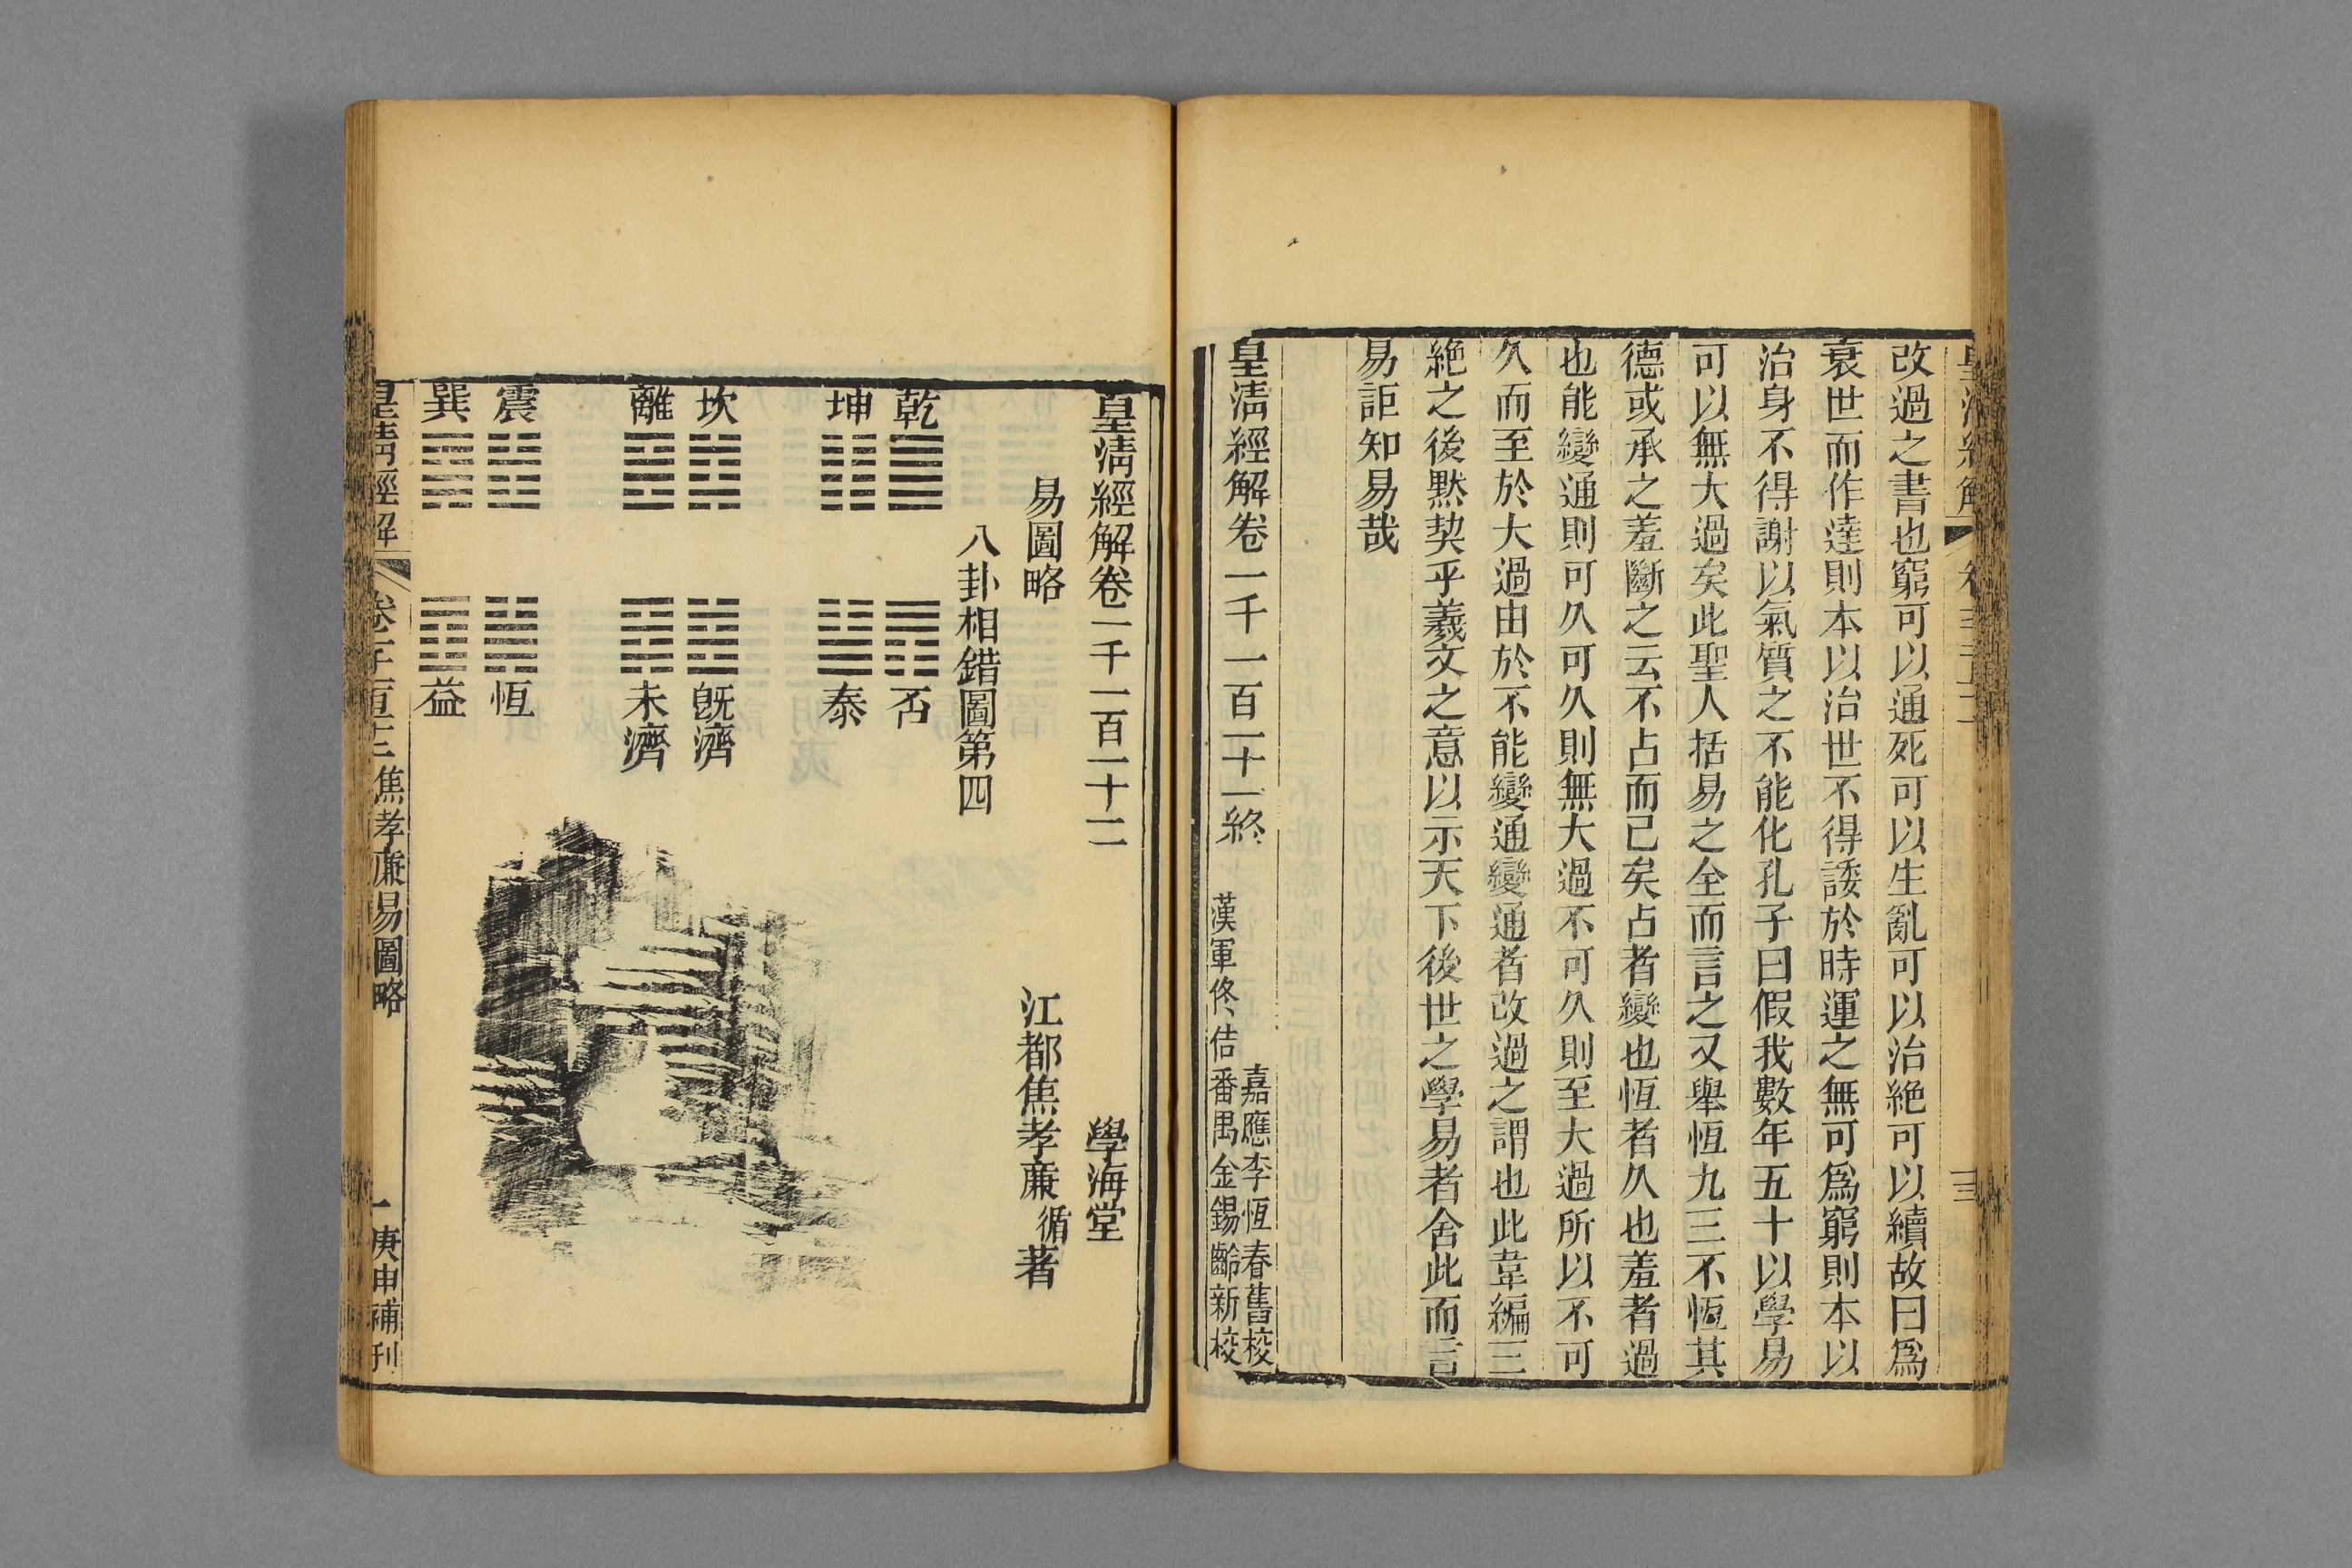 改過之書也窮可以通死可以生亂可以治絶可以續故曰爲
衰世而作達則本以治世不得諉於時運之無可爲窮則本以
治身不得謝以氣質之不能化孔子曰假我數年五十以學易
可以無大過矣此聖人括易之全而言之又舉恆九三不恆其
德或承之羞斷之云不占而已矣占者變也恆者久也羞者過
也能變通則可久可久則無大過不可久則至大過所以不可
久而至於大過由於不能變通變通者改過之謂也此韋編三
絶之後默契乎羲文之意以示天下後世之學易者舍此而言
易詎知易哉
皇淸經解卷一千一百一十一終
嘉應李恆春舊校
漢軍佟佶番禺金錫齡新校
皇淸經解卷一千一百一十二
學海堂
易圖略
江都焦孝廉循著
八卦相錯圖第四
乾 否
坤 泰
坎 旣濟
離 未濟
震 恆
巽 益
皇淸經解 卷一千一百十二 焦孝廉易圖略 一 庚申補刊